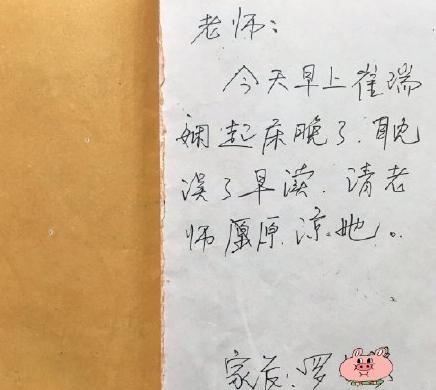 老师：
今天早上崔瑞
娴起床晚了.耽
误了早读.请老
师原谅她。
家长:罗